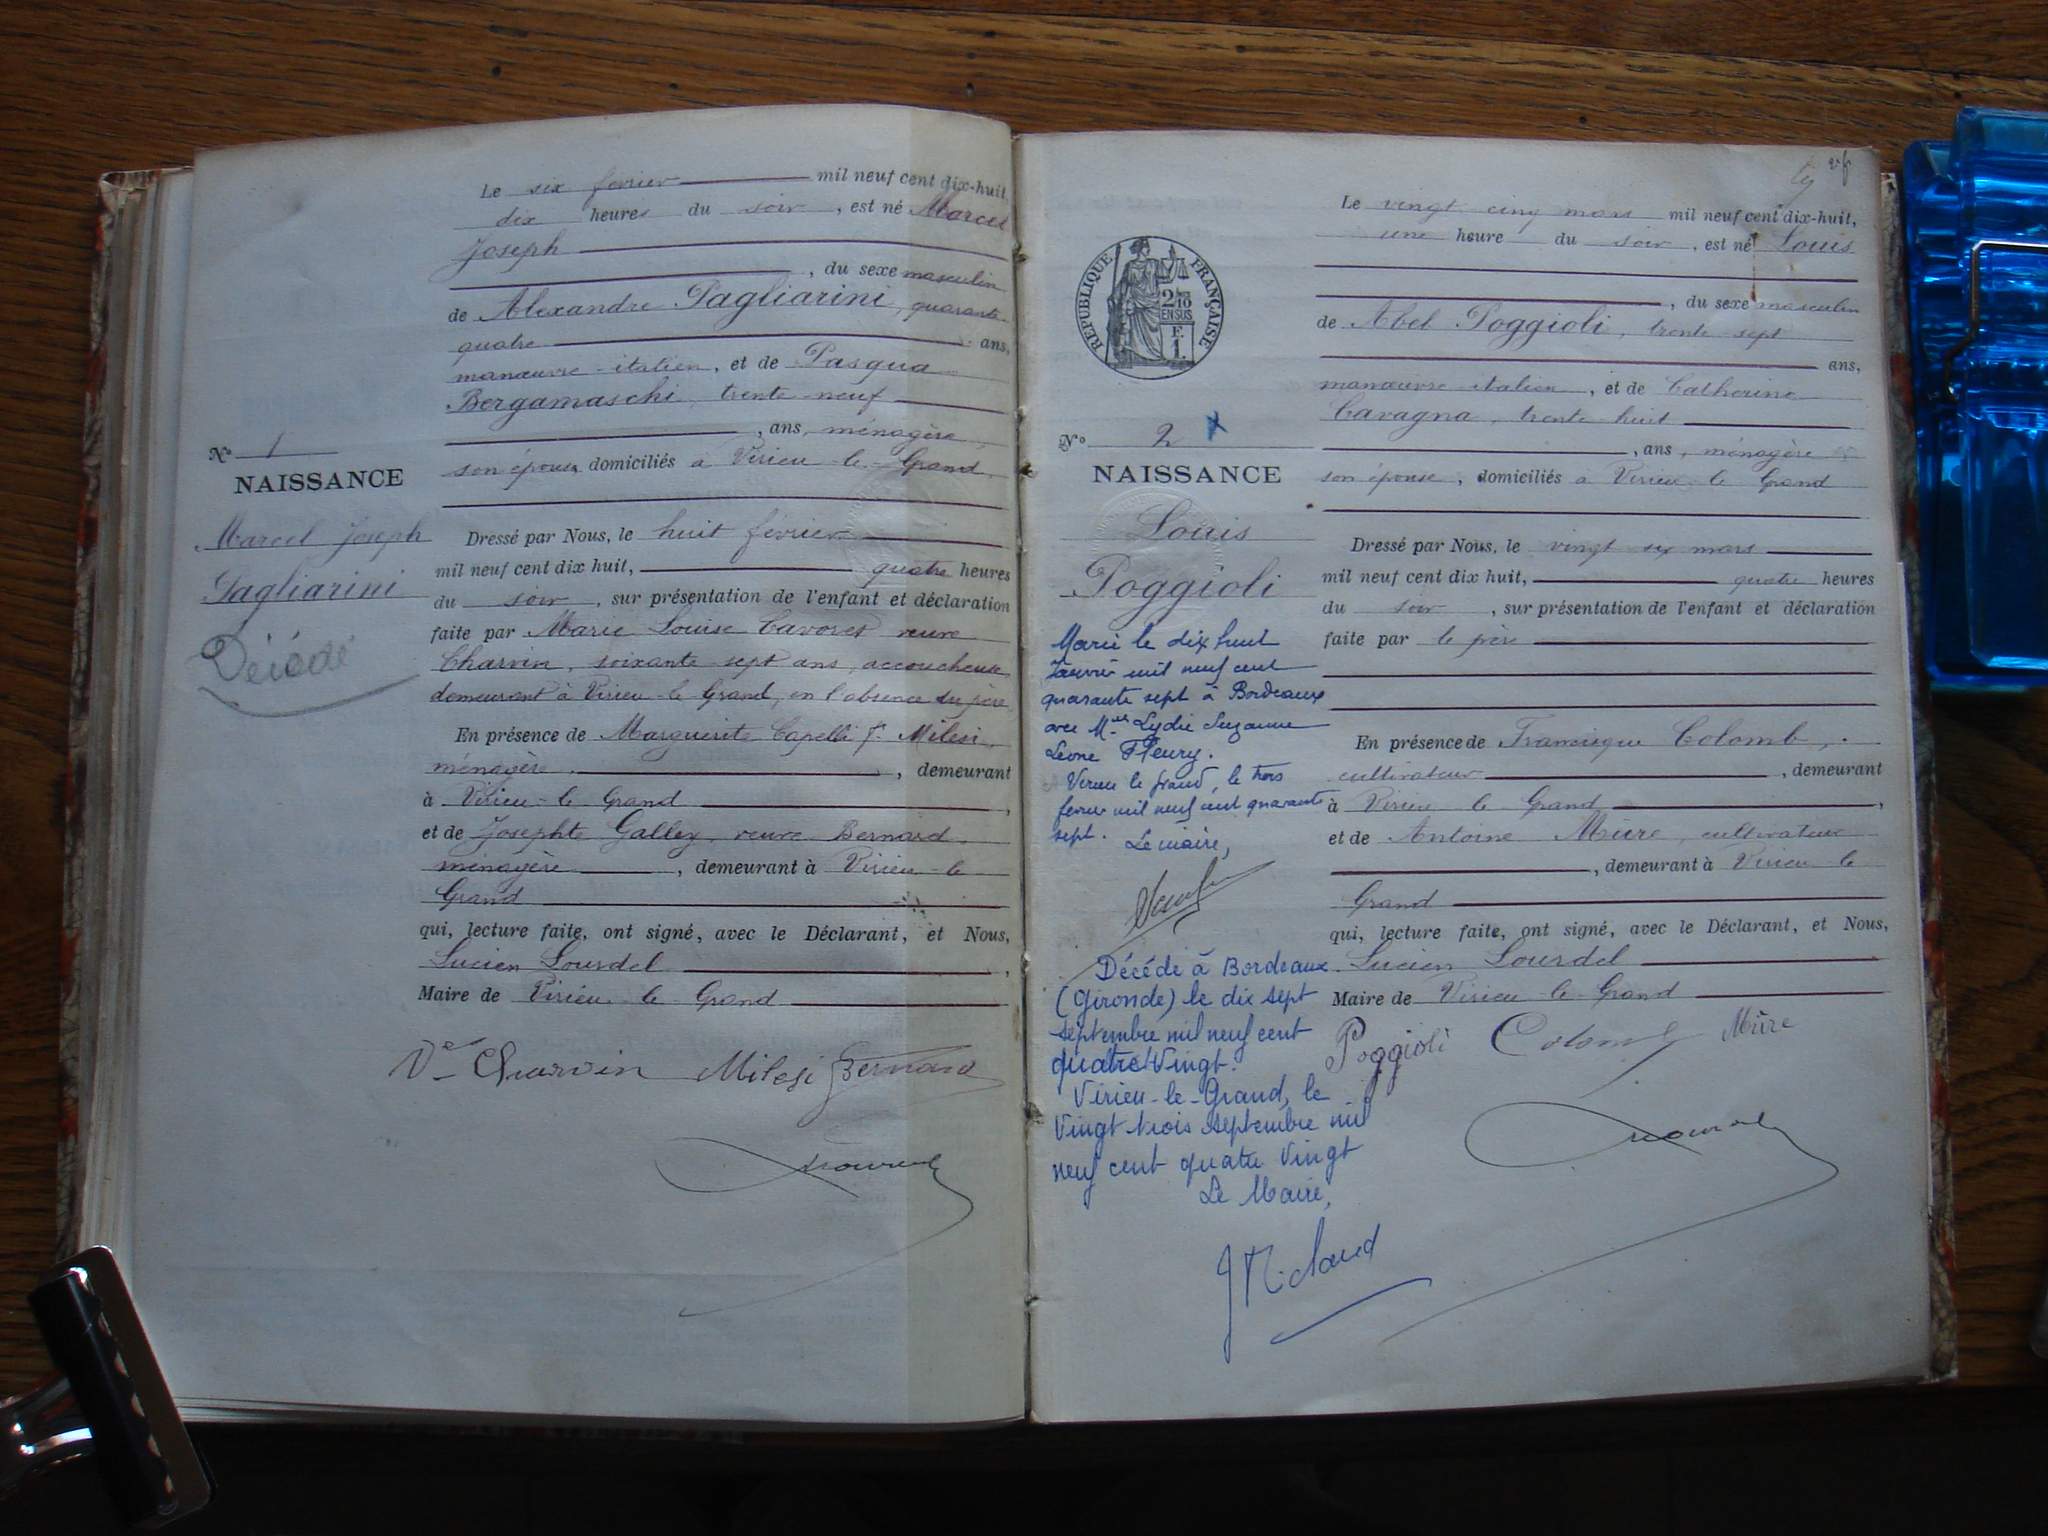 Le six février mil neuf cent dix-huit,
dix heures du soir, est né Marcel
Joseph
, du sexe masculin
de Alexandre Pagliarini, quarante
quatre ans,
manœuvre italien, et de Pasqua
Bergamaschi, trente neuf
, ans, ménagère,
son épouse, domiciliés à Virieu-le-Grand,
N° 1
NAISSANCE
Marcel Joseph
Pagliarini
Décédé
Dressé par Nous, le huit février
mil neuf cent dix huit, quatre heures
du soir, sur présentation de l'enfant et déclaration
faite par Marie Louise Cavoret veuve
Charvin, soixante sept ans, accoucheuse
demeurant à Virieu-le-Grand, en l'absence du père
En présence de Marguerite Capelli f. Milesi,
ménagère, , demeurant
à Virieu-le-Grand,
et de Josephte Galley, veuve Bernard,
ménagère, demeurant à Virieu-le
Grand
qui, lecture faite, ont signé, avec le Déclarant, et Nous,
Lucien Lourdel,
Maire de Virieu-le-Grand
Vve Charvin Milesi Bernard
Le vingt cinq mars mil neuf cent dix-huit,
une heure du soir, est né Louis
, du sexe masculin
de Abel Poggioli, trente sept
ans,
manœuvre italien, et de Catherine
Cavagna, trente huit
, ans, ménagère
son épouse, domiciliés à Virieu-le-Grand
RÉPUBLIQUE FRANÇAISE
2/10
EN SUS
F.
1.
N° 2 x
NAISSANCE
Louis
Poggioli
Marié le dix huit
janvier mil neuf cent
quarante sept à Bordeaux
avec Mlle Lydie Suzanne
Léone Fleury.
Virieu le grand, le trois
fevrier mil neuf cent quarante
sept.
Le maire,
Décédé à Bordeaux
(Gironde) le dix sept
septembre mil neuf cent
quatre Vingt.
Virieu-le-Grand, le
Vingt trois septembre mil
neuf cent quatre Vingt
Le Maire,
Dressé par Nous, le vingt six mars
mil neuf cent dix huit, quatre heures
du soir, sur présentation de l'enfant et déclaration
faite par le père
En présence de Francisque Colomb,
cultivateur, demeurant
à Virieu-le-Grand,
et de Antoine Mûre, cultivateur
, demeurant à Virieu-le
Grand
qui, lecture faite, ont signé, avec le Déclarant, et Nous,
Lucien Lourdel
Maire de Virieu-le-Grand
Poggioli Colomb Mûre